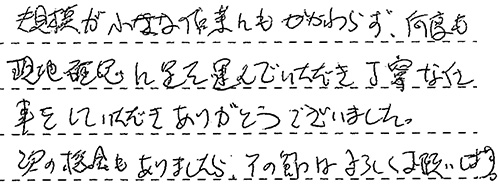 規模が小さな作業にもかかわらず、何度も
現地確認に足を運んでいただき丁寧な仕
事をしていただきありがとうございました。
次の機会もありましたら、その節はよろしくお願いします